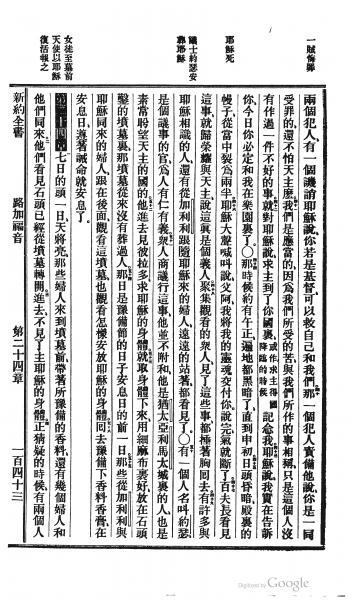 一賊悔罪
兩個犯人有一個譏誚耶穌說你若是基督可以救自己和我們那一個犯人責備他說你是一同
受罪的還不怕天主麽我們是應當的因爲我們所受的苦與我們所作的事相稱只是這個人沒
有作過一件不好的事就對耶穌說求主到了你國裏或作求主得國降臨的時候記念我耶穌說我實在告訴
耶穌死
你今日你必定和我在樂園裏了○那時候約有午正遍地都黑暗了直到申初日頭昏暗殿裏的
幔子從當中裂爲兩半耶穌大聲喊叫說父阿我將我的靈魂交付你說完氣就斷了百夫長看見
這事就歸榮耀與天主說這眞是個義人聚集觀看的衆人見了這些事都搥著胸回去有許多與
議士約瑟安
葬耶穌
耶穌相識的人還有從加利利跟隨耶穌來的婦人遠遠的站著都看見了○有一個人名叫約瑟
是個議事的官爲人有仁有義衆人商議行這事他並不附和他是猶太亞利馬太城裏的人也是
素常盼望天主的國的他進去見彼拉多求耶穌的身體就取身體下來用細麻布裹好放在石頭
鑿的墳墓裏那墳墓從來沒有葬過人那日是豫備節的日子安息日的前一日那些從加利利與
耶穌同來的婦人跟在後面觀看這墳墓也觀看怎樣安放耶穌的身體回去豫備下香料香膏在
安息日遵著誡命就安息了
女徒至墓前
天使以耶穌
復活報之
第二十四章七日的頭一日天將亮那些婦人來到墳墓前帶著所豫備的香料還有幾個婦人和
他們同來他們看見石頭已經從墳墓轉開進去不見了主耶穌的身體正猜疑的時候有兩個人
新約全書 路加福音 第二十四章 百四十三
Digitized by Google